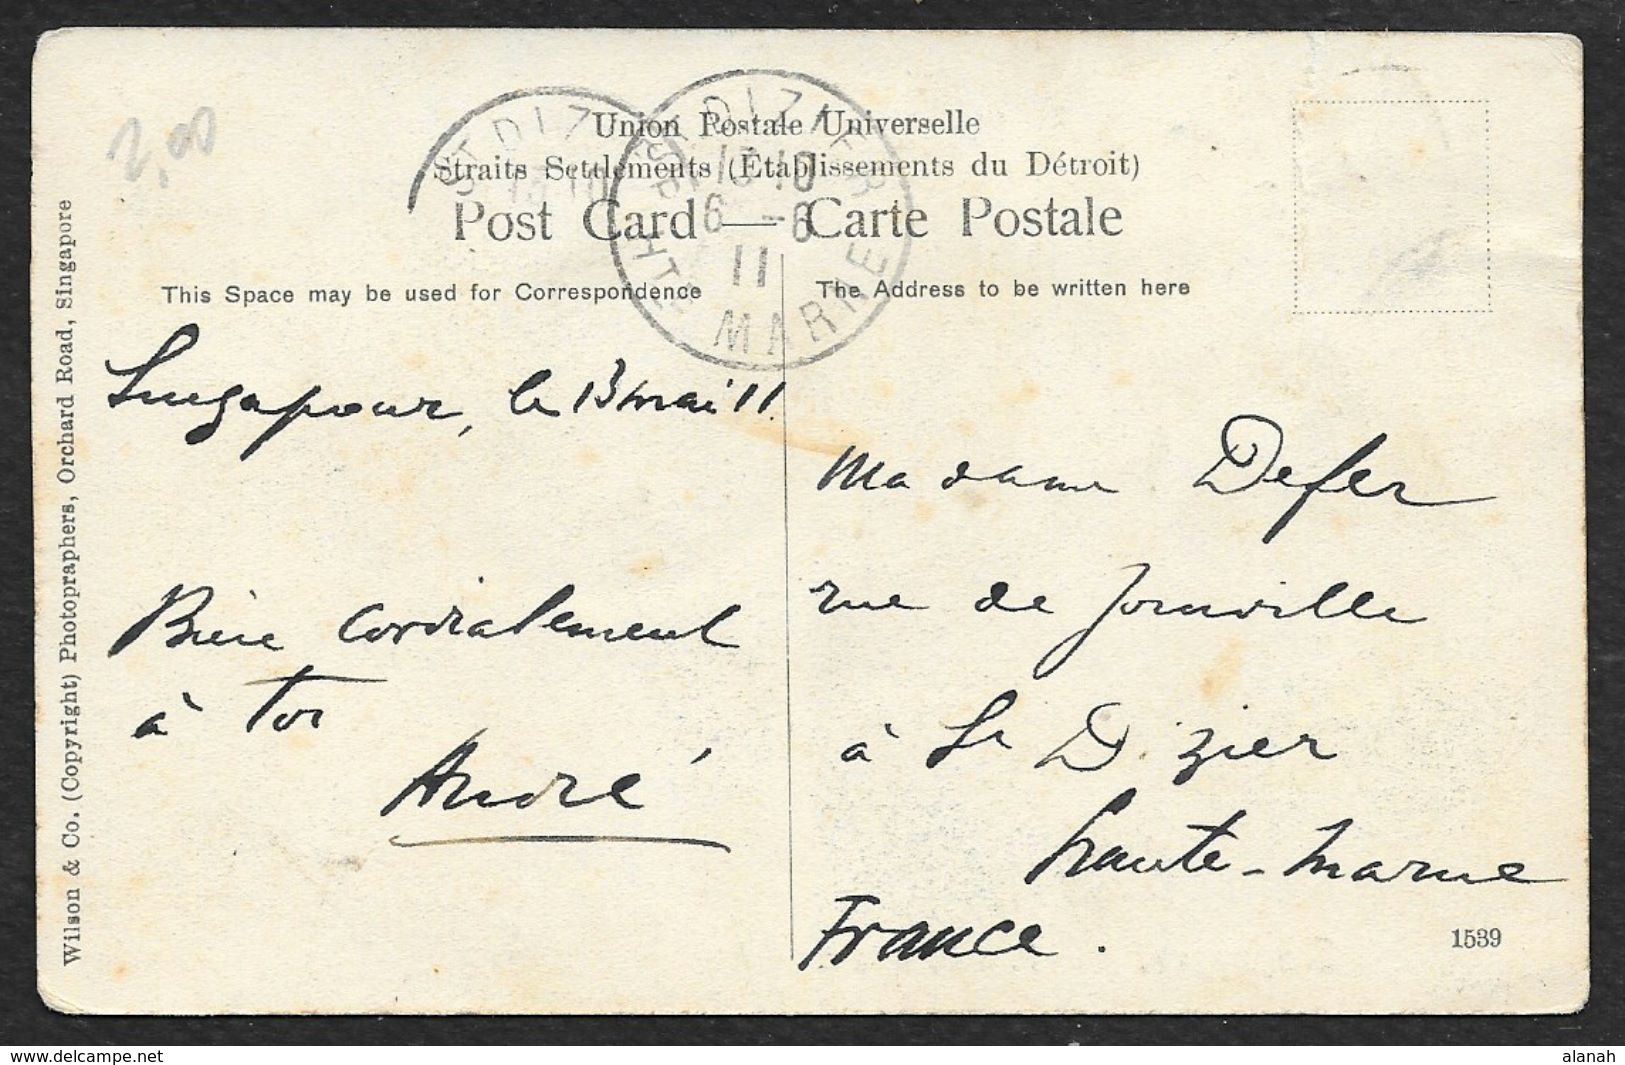 2,00
Union Postale Universelle
Straits Settlements (Etablissements du Détroit)
Post Card — Carte Postale
ST DIZ
ST DIZIER
13 10
6 - 6
11
HTE MARNE
This Space may be used for Correspondence
The Address to be written here
Singapour, le 13 mai 11
Bien cordialement
à toi
André
Madame Defer
rue de Joinville
à St Dizier
haute-marne
France.
1539
Wilson & Co. (Copyright) Photopraphers, Orchard Road, Singapore
delcampe.net
alanah